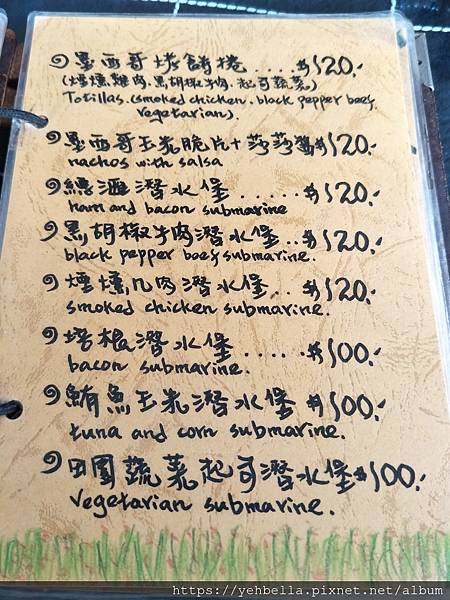 墨西哥烤餅捲....$120.-
(煙燻雞肉.黑胡椒牛肉.起司蔬菜)
Totillas.(smoked chicken. block pepper beef.
vegetarian).
墨西哥玉米脆片+莎莎醬$120.-
nachos with salsa
總滙潛水堡.....$120.-
ham and bacon submarine
黑胡椒牛肉潛水堡..$120.-
black pepper beef submarine.
煙燻几肉潛水堡...$120.-
smoked chicken submarine.
培根潛水堡.....$100.-
bacon submarine.
鮪魚玉米潛水堡 $100.-
tuna and corn submarine.
田園蔬菜起司潛水堡$100.-
vegetarian submarine.
https://yehbella.pixnet.net/album